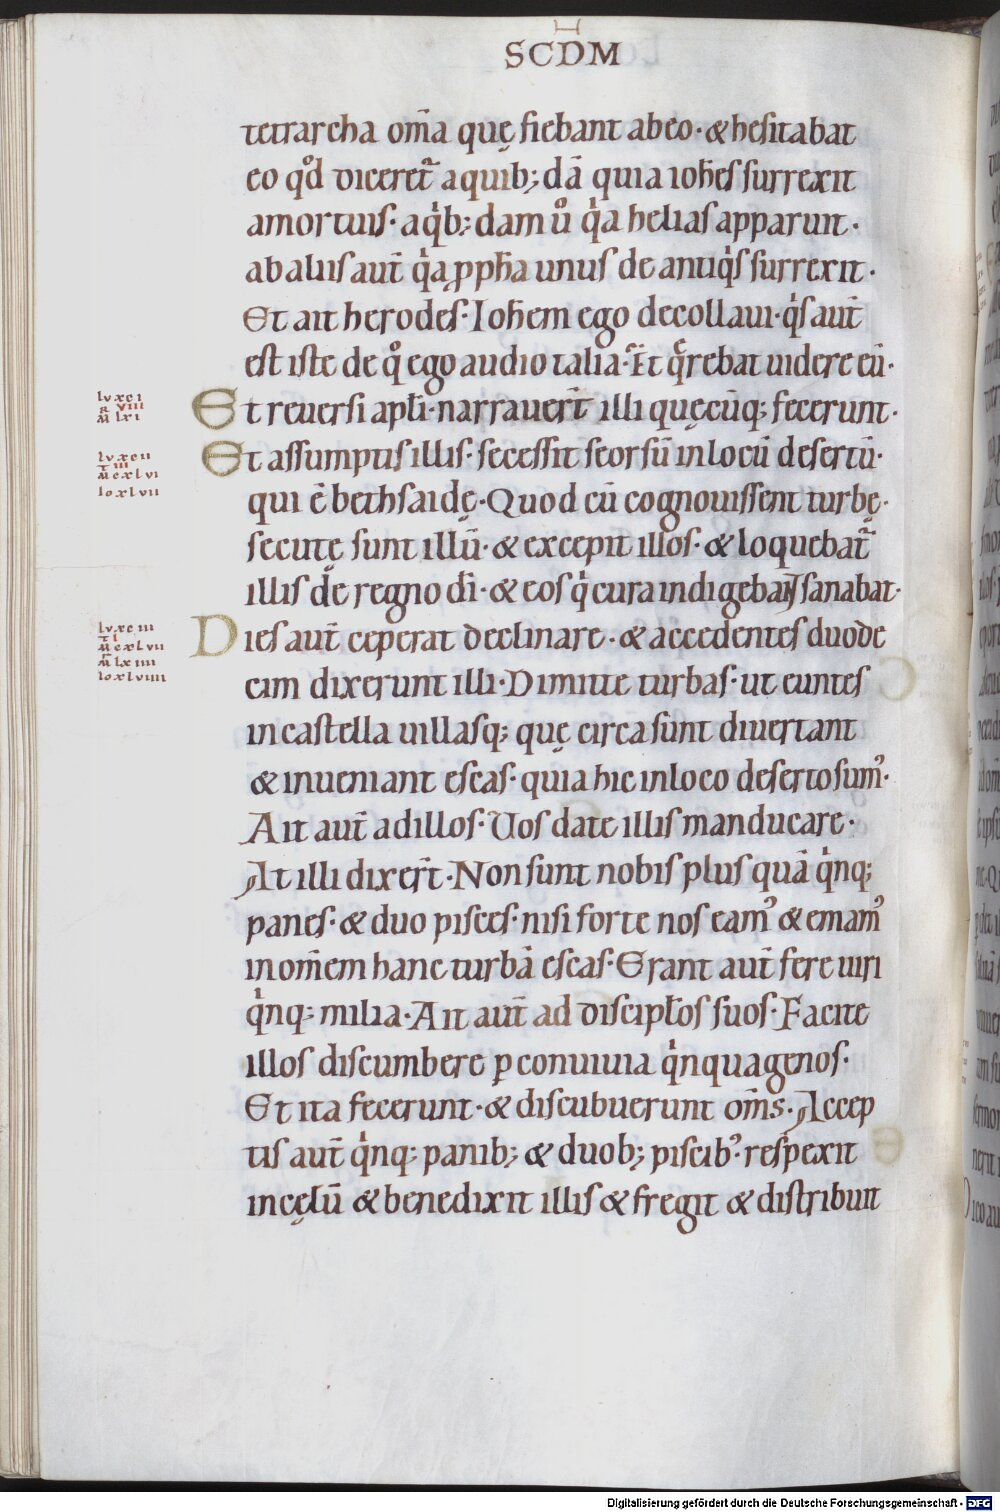 SCDM
tetrarcha om̄a quę fiebant ab eo · & hesitabat
eo qͦd diceret᷑ a quib; dā quia ioh̄es surrexit
amortuis · a qͥb; dam uͦ qͥa helias apparuit ·
ab aliis aut̄ qͥa ꝓph̄a unus de antiqͥs surrexit ·
Et ait herodes · Ioh̄em ego decollaui · qͥs aut̄
est iste de qͦ ego audio talia · Et qͣrebat uidere eū ·
Et reuersi apl̄i · narrauer̄t illi quęcūq; fecerunt ·
Et assumptis illis · secessit seorsū in locū desertū ·
qui ē bethsaidę · Quod cū cognouissent turbę ·
secutę sunt illū · & excepit illos · & loquebat᷑
illis de regno dī · & eos qͥ cura indigebant sanabat ·
Dies aut̄ ceperat declinare · & accedentes duode
cim dixerunt illi · Dimitte turbas · ut euntes
in castella uillasq; quę circa sunt diuertant
& inueniant escas · quia hic in loco deserto sumꝰ ·
Ait aut̄ ad illos · Uos date illis manducare ·
At illi dixer̄t · Non sunt nobis plus quā qͥnq;
panes · & duo pisces · nisi forte nos eamꝰ & emamꝰ
in om̄em hanc turbā escas · Erant aut̄ fere uiri
qͥnq; milia · Ait aut̄ ad discipl̄os suos · Facite
illos discumbere ꝑ conuiuia qͥnquagenos ·
Et ita fecerunt · & discubuerunt om̄s · Accep
tis aut̄ qͥnq; panib; & duob; piscibꝰ · respexit
in cęlū & benedixit illis & fregit & distribuit
lv xc i
R VIII
M LXI
lv xc ii
T III
M cxlvi
Io xlvii
lv xc iii
T I
M cxlvii
M lxiiii
Io xlviiii
Digitalisierung gefördert durch die Deutsche Forschungsgemeinschaft - DFG